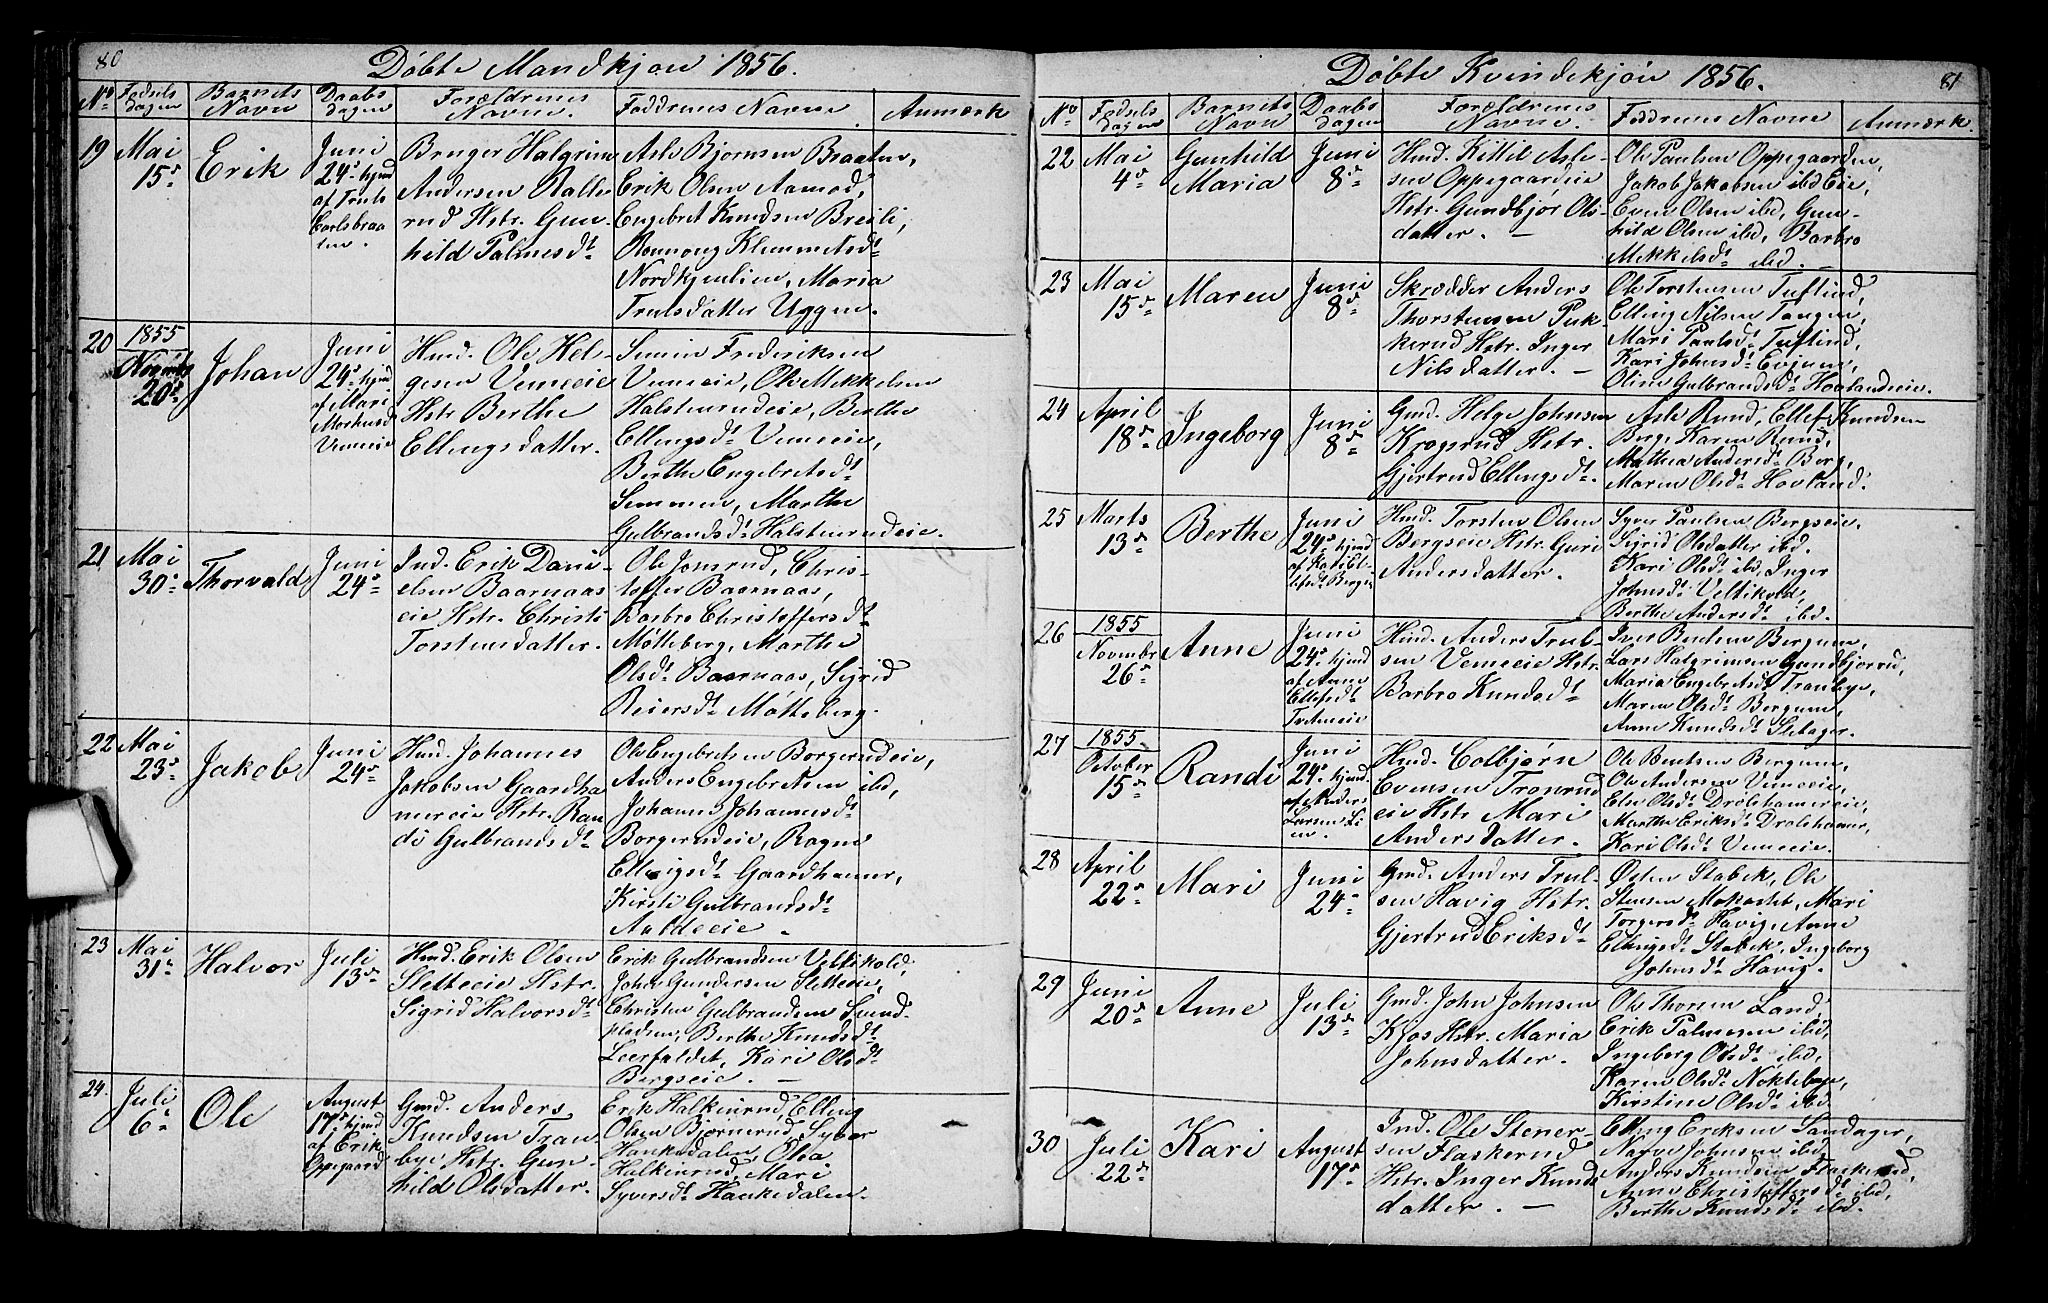 80
Døbte Mandkjøn 1856.
No
Fødsels dagen
Barnets Navn
Daabs dagen
Forældrenes Navne.
Faddrenes Navne
Anmærk
19
Mai 15de
Erik
Juni 24de hjmd af Truls
Bruger Halgrim
Andersen
Hstr. Gun-
hild Palmesdt
Asle Bjørnsen Braaten,
Erik Olsen Aamod,
Engebret Knudsen Breili,
Rønnoug Klemmetsdt
Nordkjenlien, Maria
Trulsdatter Uggen.
20
1855
Novembr 20de
Johan
Juni 24de hjmd af Mari
Vemeeie
Hmd. Ole Hel-
gesen Vemeeie
Hstr Berthe
Ellingsdatter.
Simen Frederiksen
Vemeeie, Ole Mekkelsen
Halstenrudeie, Berthe
Ellingsdt Vemeeie,
Berthe Engebretsdt
Semmen, Marthe
Gulbrandsdt Halstenrudeie.
21
Mai 30de
Thorvald
Juni 24de
Ind. Erik Dani-
elsen Baarnaas
eie Hstr. Christi
Torstensdatter.
Ole Jonsrud, Chris-
toffer Baarnaas,
Barbro Christoffersdt
Møtteberg, Marthe
Olsdt Baarnaas, Sigrid
Reiersdt Møtteberg.
22
Mai 23de
Jakob
Juni 24de
Hmd. Johannes
Jakobsen Gaardha
mereie Hstr. Ran
di Gulbrandsdt
Ole Engebretsen Borgerudeie,
Anders Engebretsen ibd,
Johanne Johannesdt
Borgerudeie, Ragne
Ellingsdt Gaardhamer,
Kirsti Gulbrandsdt
23
Mai 31te
Halvor
Juli 13de
Hmd. Erik Olsen
Sletteeie Hstr.
Sigrid Halvorsdt
Erik Gulbrandsen Veltikold,
John Gundersen Sletteeie,
Christen Gulbrandsen Sund-
pladsen, Berthe Knudsdt
Leerfaldet, Kari Olsdt
Bergseie.
24
Juli 6te
Ole
August 17de hjmd af Erik Oppegaard
Gmd. Anders
Knudsen Tran
bye Hstr. Gun
hild Olsdatter.
Erik Halkinrud, Elling
Olsen Bjørnerud, Syver
Hankedalen, Olia
Halkinrud, Mari
Syversdt Hankedalen.
Døbte Kvindekjøn 1856.
81
No
Fødsels dagen
Barnets Navn
Daabs dagen
Forældrenes Navne.
Faddrenes Navne
Anmærk.
22
Mai 4de
Gunhild Maria
Juni 8de
Hmd. Kittil Asle-
sen Oppegaardeie
Hstr. Gundbjør Ols-
datter.
Ole Paulsen Oppegaarden,
Jakob Jakobsen ibd Eie,
Even Olsen ibd, Gun-
hild Olsen ibd, Barbro
Mekkelsdt ibd.
23
Mai 15de
Maren
Juni 8de
Skrædder Anders
Thorstensen Puk-
kerud Hstr. Inger
Nilsdatter.
Ole Torstensen Tuftind,
Elling Nilsen Tangen,
Mari Paulsdt Tuftind,
Kari Johnsdt Evjuen,
Oline Gulbrandsdt Hovlandeie.
24
April 18de
Ingeborg
Juni 8de
Gmd. Helge Johnsen
Krogsrud Hstr.
Gjertrud Ellingsdt.
Asle Rund, Ellef Knudsen
Berg, Karen Rund,
Mathea Andersdt Berg,
Maren Olsdt Hovland.
25
Marts 13de
Berthe
Juni 24de hjmd af Kari El-
lefsdt Bergs
Hmd. Torsten Olsen
Bergseie Hstr. Guri
Andersdatter.
Syver Paulsen Bergseie,
Sigrid Olsdatter ibd.
Kari Olsdt ibd, Inger
Johnsdt Veltikold,
Berthe Andersdt ibd.
26
1855
Novembr 26de
Anne
Juni 24de hjmd af Anne
Ellefsdt
Hmd. Anders Trul-
sen Vemeeie Hstr.
Barbro Knudsdt
Iver Bentsen Bergum,
Lars Halgrimsen Gundbjørrud,
Maria Engebretsdt Tranbye,
Maren Olsdt Bergum,
Anne Knudsdt Sletager.
27
1855
October 15de
Randi
Juni 24de hjmd. af Anders
Larsen Li
en.
Hmd. Colbjørn
Evensen Tronrud
eie Hstr Mari
Andersdatter.
Ole Bentsen Bergum,
Ole Andersen Vemeeie,
Else Olsdt Drolshamereie,
Marthe Eriksdt Drolshamer,
Kari Olsdt Vemeeie.
28
April 22de
Mari
Juni 24de
Gmd. Anders Trul-
sen Havig Hstr.
Gjertrud Eriksdt
Østen Stabek, Ole
Stensen Mokastet, Mari
Torgersdt Havig, Anne
Ellingsdt Stabek, Ingeborg
Johnsdt Havig.
29
Juni 20de
Anne
Juli 13de
Gmd. John Johnsen
Kjos Hstr. Maria
Johnsdatter.
Ole Thoresen Land,
Erik Palmesen ibd,
Ingeborg Olsdt ibd,
Karen Olsdt Nøkleby,
Kirstine Olsdt ibd.
30
Juli 22de
Kari
August 17de
Ind. Ole Stener-
sen Flaskerud
Hstr. Inger Knuds
datter.
Elling Eriksen Sandager,
Narve Johnsen ibd,
Anders Knudsen Flaskerud,
Anne Christoffersdt ibd,
Berthe Knudsdt ibd.